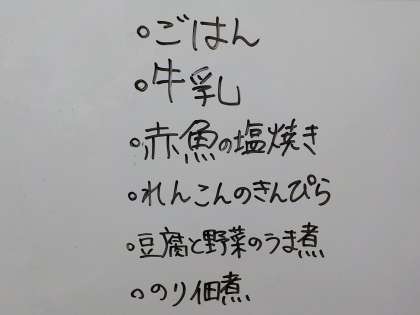 ○ごはん
○牛乳
○赤魚の塩焼き
○れんこんのきんぴら
○豆腐と野菜のうま煮
○のり佃煮